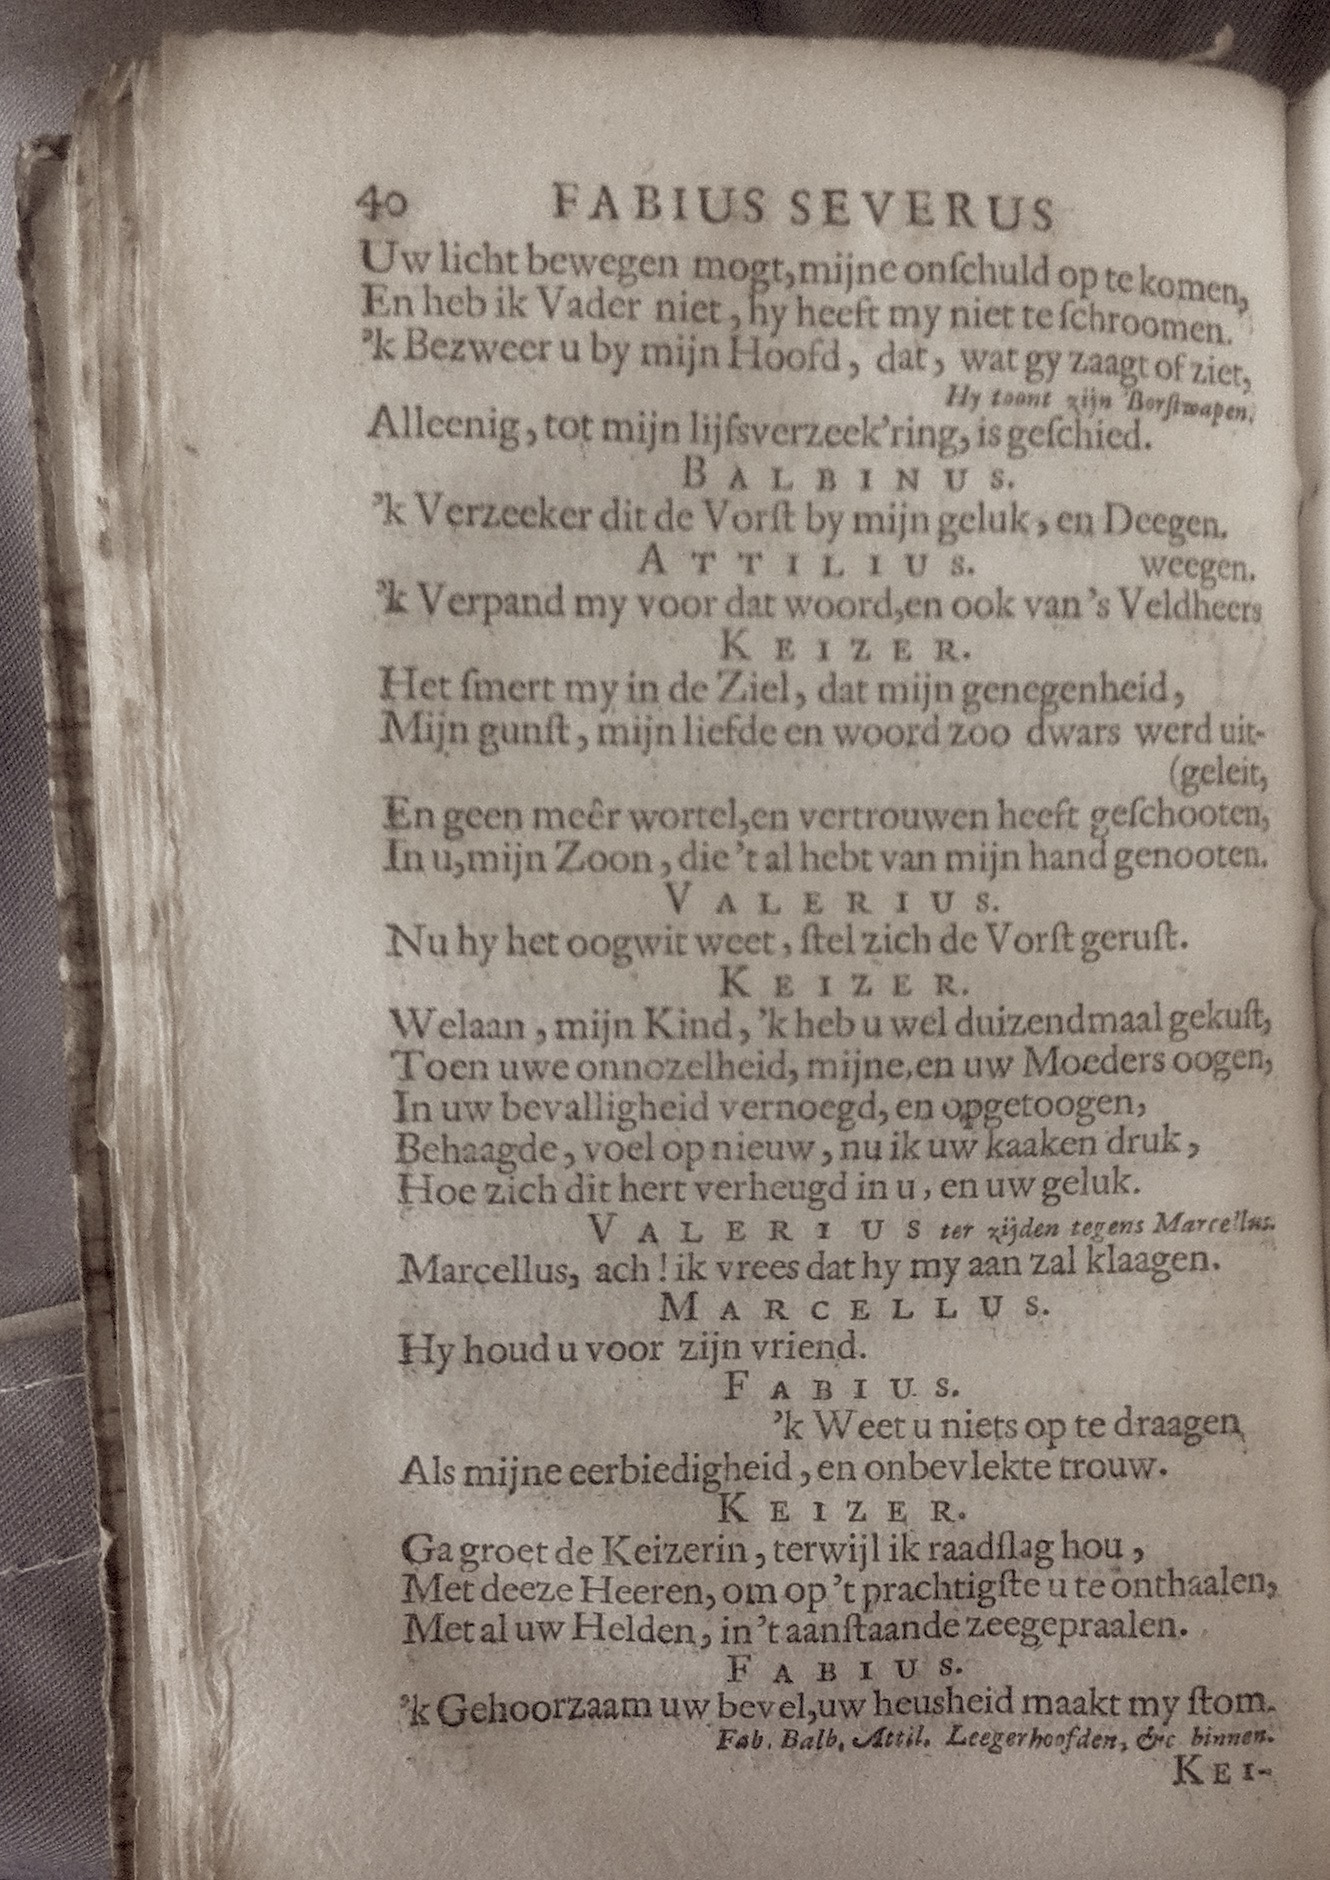 40 FABIUS SEVERUS
Uw licht bewegen mogt, mijne onſchuld op te komen,
En heb ik Vader niet, hy heeft my niet te ſchroomen.
'k Bezweer u by mijn Hoofd, dat, wat gy zaagt of ziet,
Hy toont zijn Borſtwapen.
Alleenig, tot mijn lijfsverzeek'ring, is geſchied.
BALBINUS.
'k Verzeeker dit de Vorſt by mijn geluk, en Deegen.
ATTILIUS. weegen.
'k Verpand my voor dat woord, en ook van 's Veldheers
KEIZER.
Het ſmert my in de Ziel, dat mijn genegenheid,
Mijn gunſt, mijn liefde en woord zoo dwars werd uit-
(geleit,
En geen meêr wortel, en vertrouwen heeft geſchooten,
In u, mijn Zoon, die 't al hebt van mijn hand genooten.
VALERIUS.
Nu hy het oogwit weet, ſtel zich de Vorſt geruſt.
KEIZER.
Welaan, mijn Kind, 'k heb u wel duizendmaal gekuſt,
Toen uwe onnozelheid, mijne, en uw Moeders oogen,
In uw bevalligheid vernoegd, en opgetoogen,
Behaagde, voel op nieuw, nu ik uw kaaken druk,
Hoe zich dit hert verheugd in u, en uw geluk.
VALERIUS ter zijden tegens Marcellus.
Marcellus, ach! ik vrees dat hy my aan zal klaagen.
MARCELLUS.
Hy houd u voor zijn vriend.
FABIUS.
'k Weet u niets op te draagen,
Als mijne eerbiedigheid, en onbevlekte trouw.
KEIZER.
Ga groet de Keizerin, terwijl ik raadſlag hou,
Met deeze Heeren, om op 't prachtigſte u te onthaalen,
Met al uw Helden, in 't aanſtaande zeegepraalen.
FABIUS.
'k Gehoorzaam uw bevel, uw heusheid maakt my ſtom.
Fab. Balb. Attil. Leegerhoofden, &c binnen.
KEI-